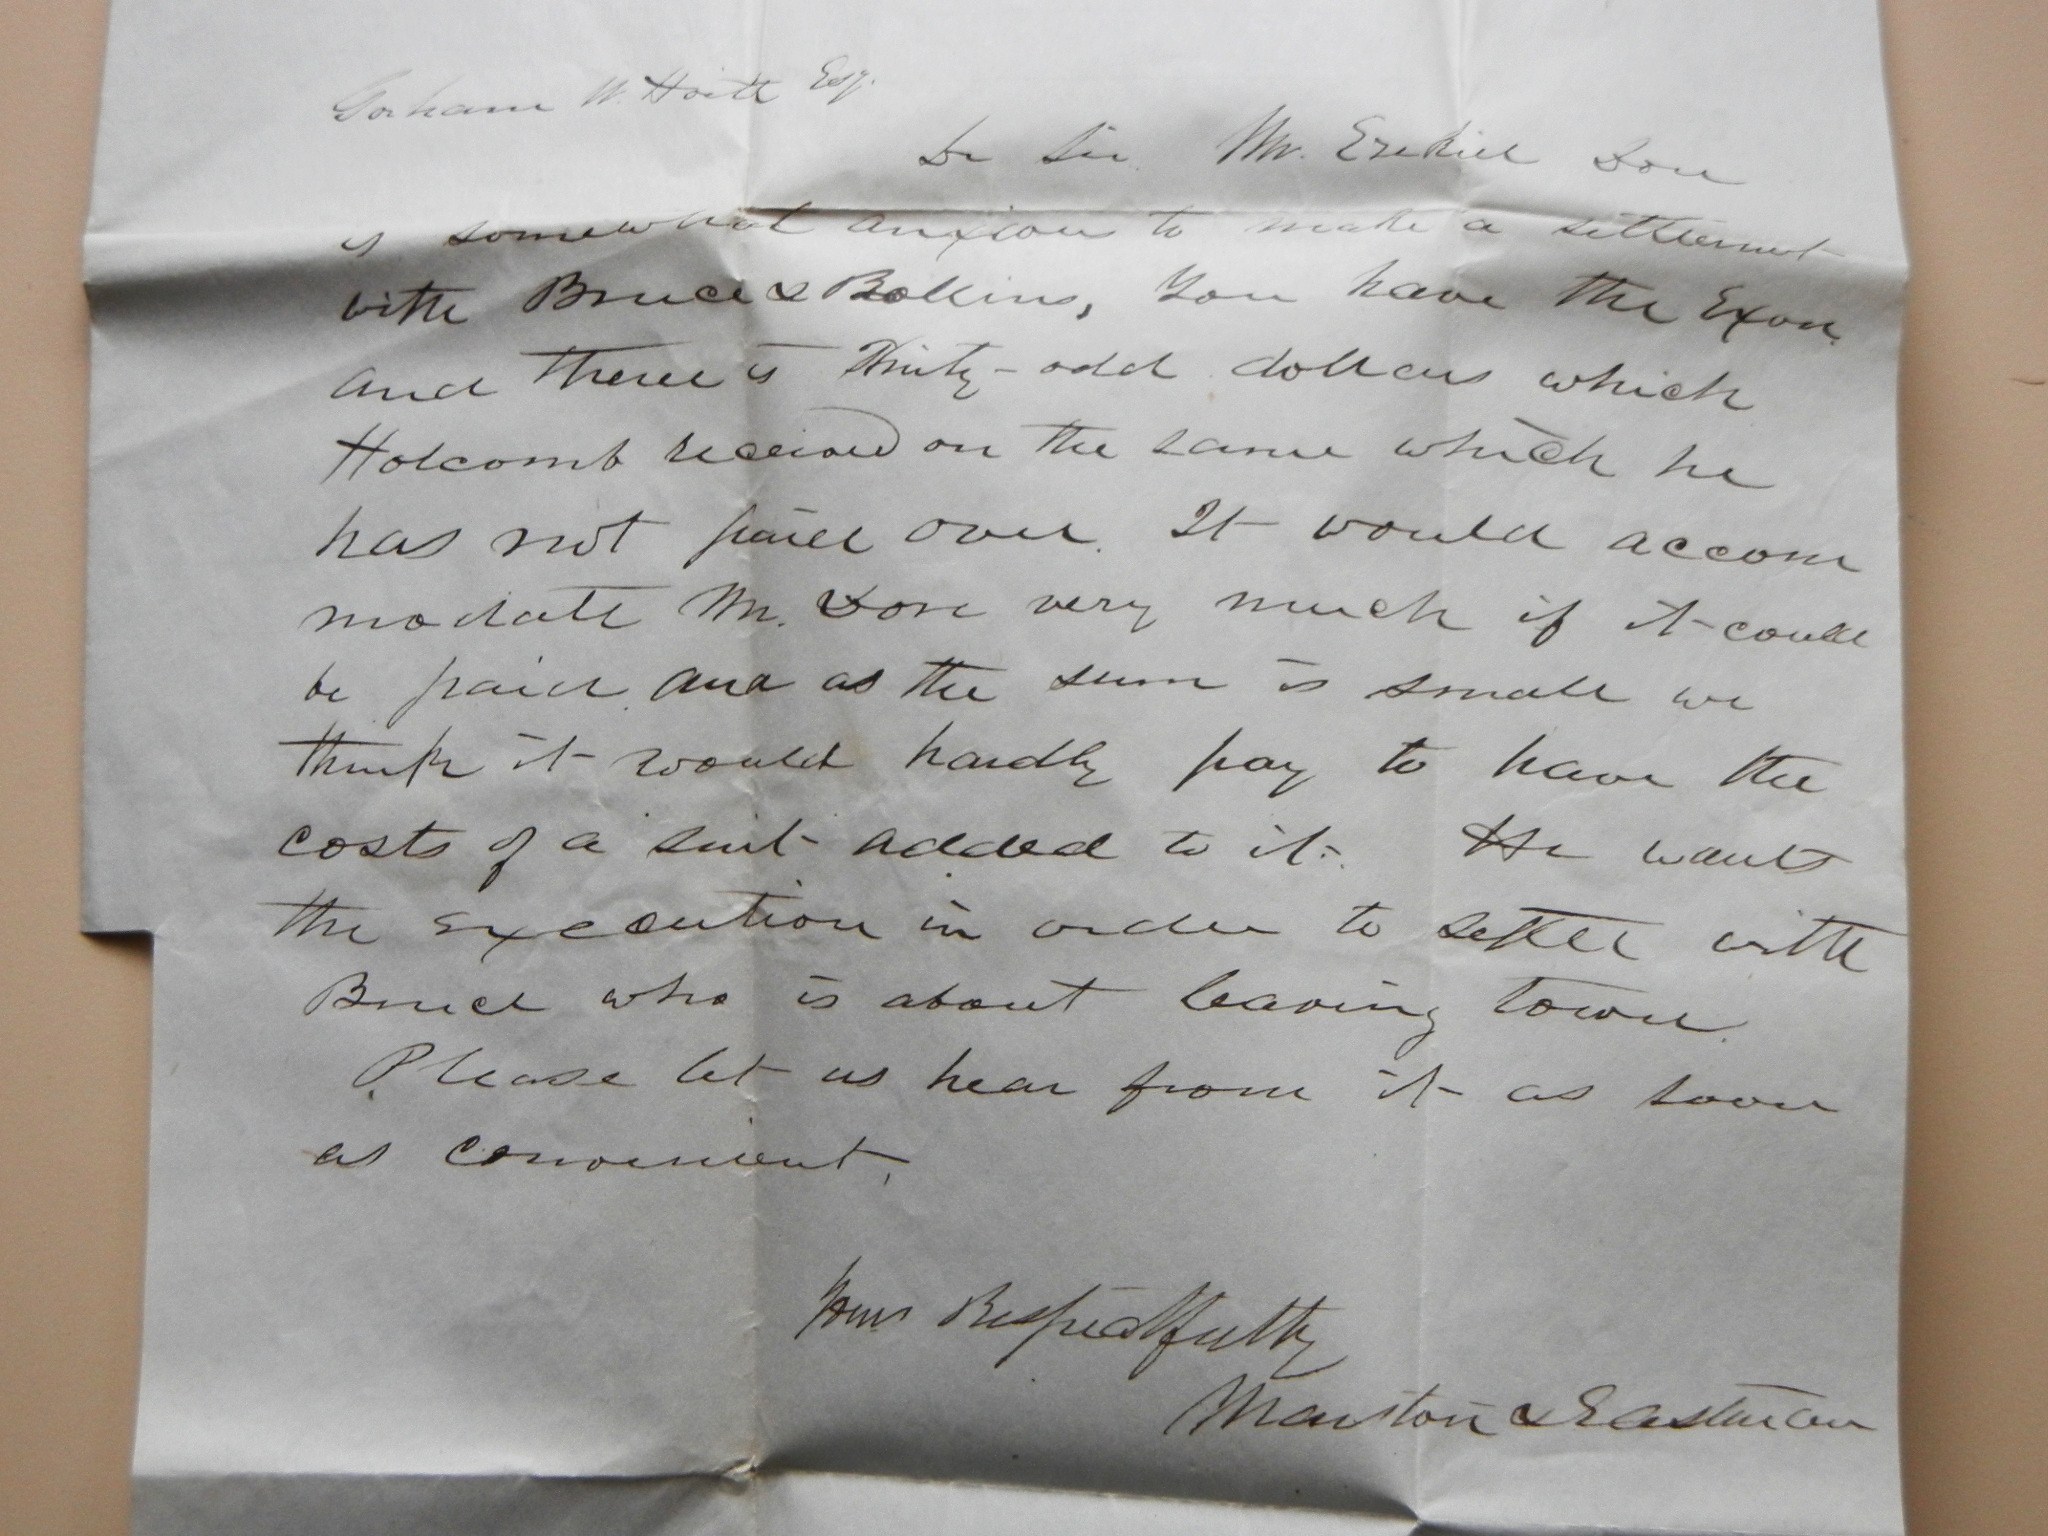 Gorham W. Hoitt Esq.
Dr Sir. Mr. Ezekiel Dore
is somewhat anxious to make a settlement
with Bruce & Rollins, You have the Exon.
and there is Thirty-odd dollars which
Holcomb received on the same which he
has not paid over. It would accom
modate Mr. Dore very much if it could
be paid and as the sum is small we
think it would hardly pay to have the
costs of a suit added to it. He wants
the execution in order to settle with
Bruce who is about leaving town.
Please let us hear from it as soon
as convenient.
Yours Respectfully
Marston & Eastman